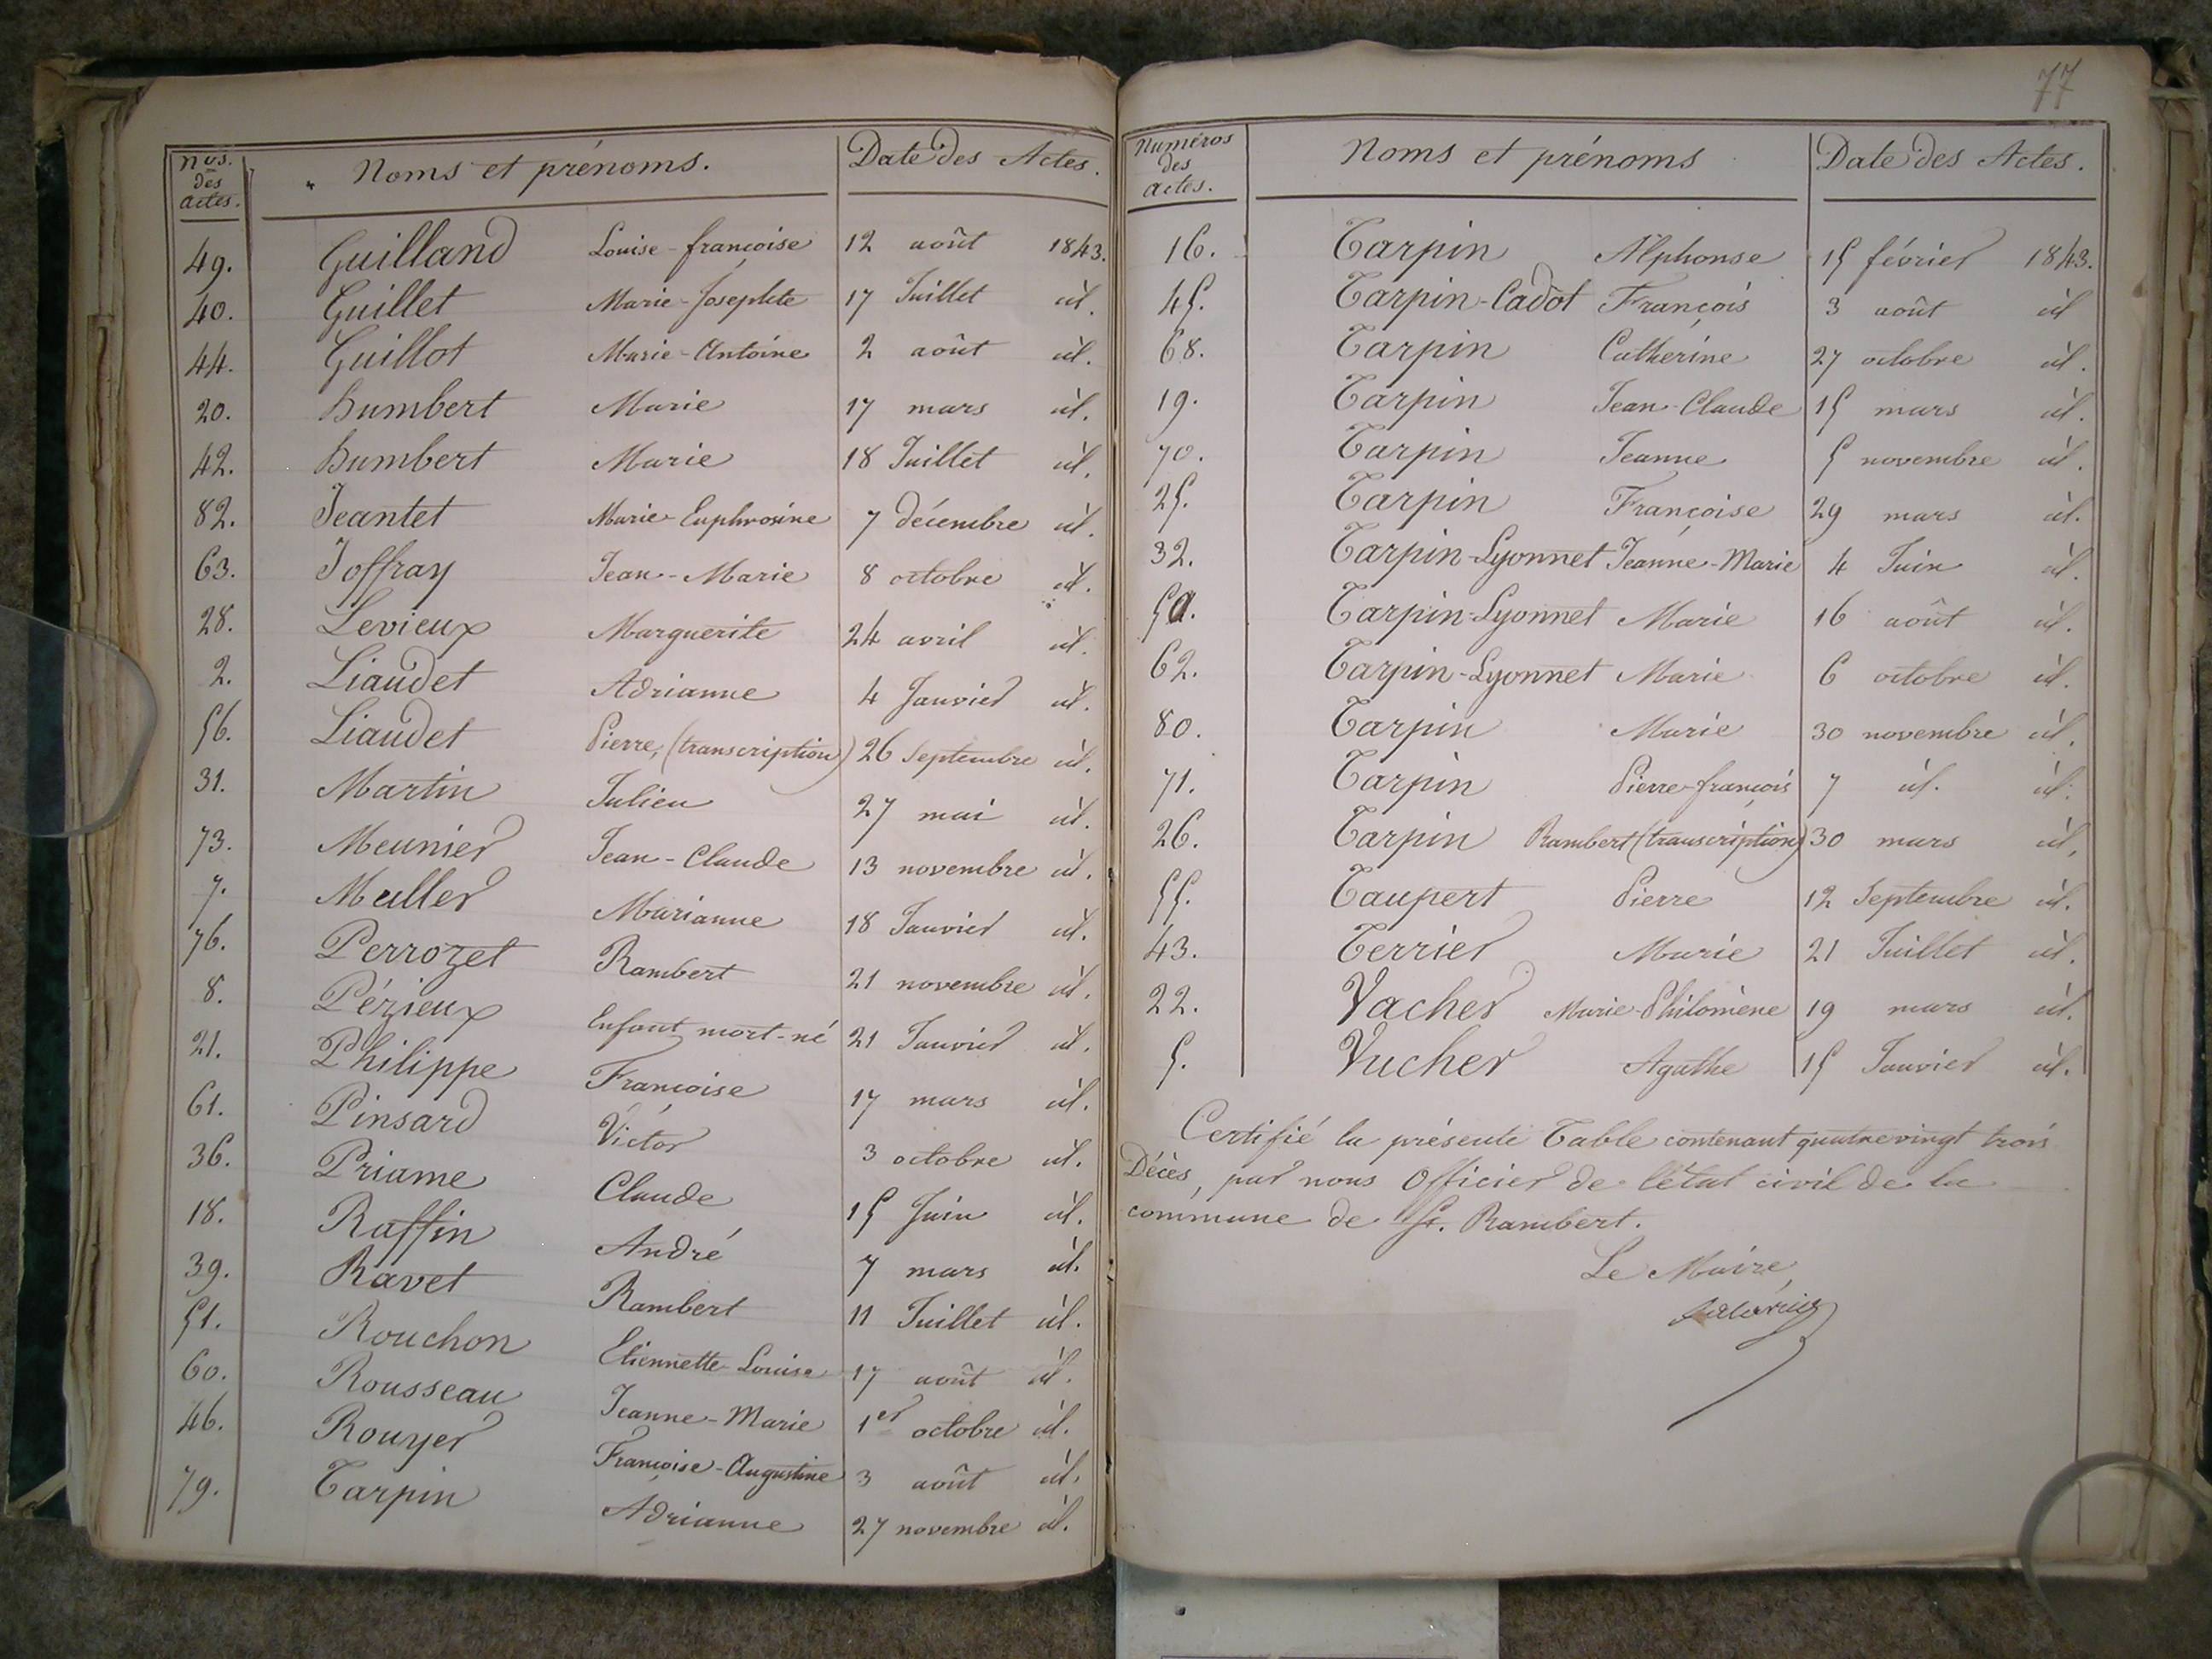 Nos. des actes. Noms et prénoms. Date des Actes.
49. Guilland Louise-françoise 12 août 1843.
40. Guillet Marie-Josephte 17 Juillet id.
44. Guillot Marie-Antoine 2 août id.
20. Humbert Marie 17 mars id.
42. Humbert Marie 18 Juillet id.
82. Jeantet Marie-Euphrosine 7 décembre id.
63. Joffray Jean-Marie 8 octobre id.
28. Levieux Marguerite 24 avril id.
2. Liaudet Adrianne 4 Janvier id.
56. Liaudet Pierre, (transcription) 26 Septembre id.
31. Martin Julien 27 mai id.
73. Meunier Jean-Claude 13 novembre id.
7. Muller Marianne 18 Janvier id.
76. Perrozet Rambert 21 novembre id.
8. Pézieux Enfant mort-né 21 Janvier id.
21. Philippe Françoise 17 mars id.
61. Pinsard Victor 3 octobre id.
36. Priame Claude 15 Juin id.
18. Raffin André 7 mars id.
39. Ravet Rambert 11 Juillet id.
51. Rouchon Etiennette-Louise 17 août id.
60. Rousseau Jeanne-Marie 1er octobre id.
46. Rouyer Françoise-Augustine 3 août id.
79. Tarpin Adrianne 27 novembre id.
77
Numéros des actes. Noms et prénoms Date des Actes.
16. Tarpin Alphonse 15 février 1843.
45. Tarpin-Cadot François 3 août id
68. Tarpin Catherine 27 octobre id.
19. Tarpin Jean-Claude 15 mars id.
70. Tarpin Jeanne 5 novembre id.
25. Tarpin Françoise 29 mars id.
32. Tarpin-Lyonnet Jeanne-Marie 4 Juin id.
50. Tarpin-Lyonnet Marie 16 août id.
62. Tarpin-Lyonnet Marie 6 octobre id.
80. Tarpin Marie 30 novembre id.
71. Tarpin Pierre-françois 7 id. id.
26. Tarpin Rambert (transcription) 30 mars id.
55. Taupert Pierre 12 Septembre id.
43. Terrier Marie 21 Juillet id.
22. Vacher Marie-Philomène 19 mars id.
5. Vucher Agathe 15 Janvier id.
Certifié la présente Table contenant quatrevingt trois
Décès, par nous Officier de l'état civil de la
commune de St. Rambert.
Le Maire,